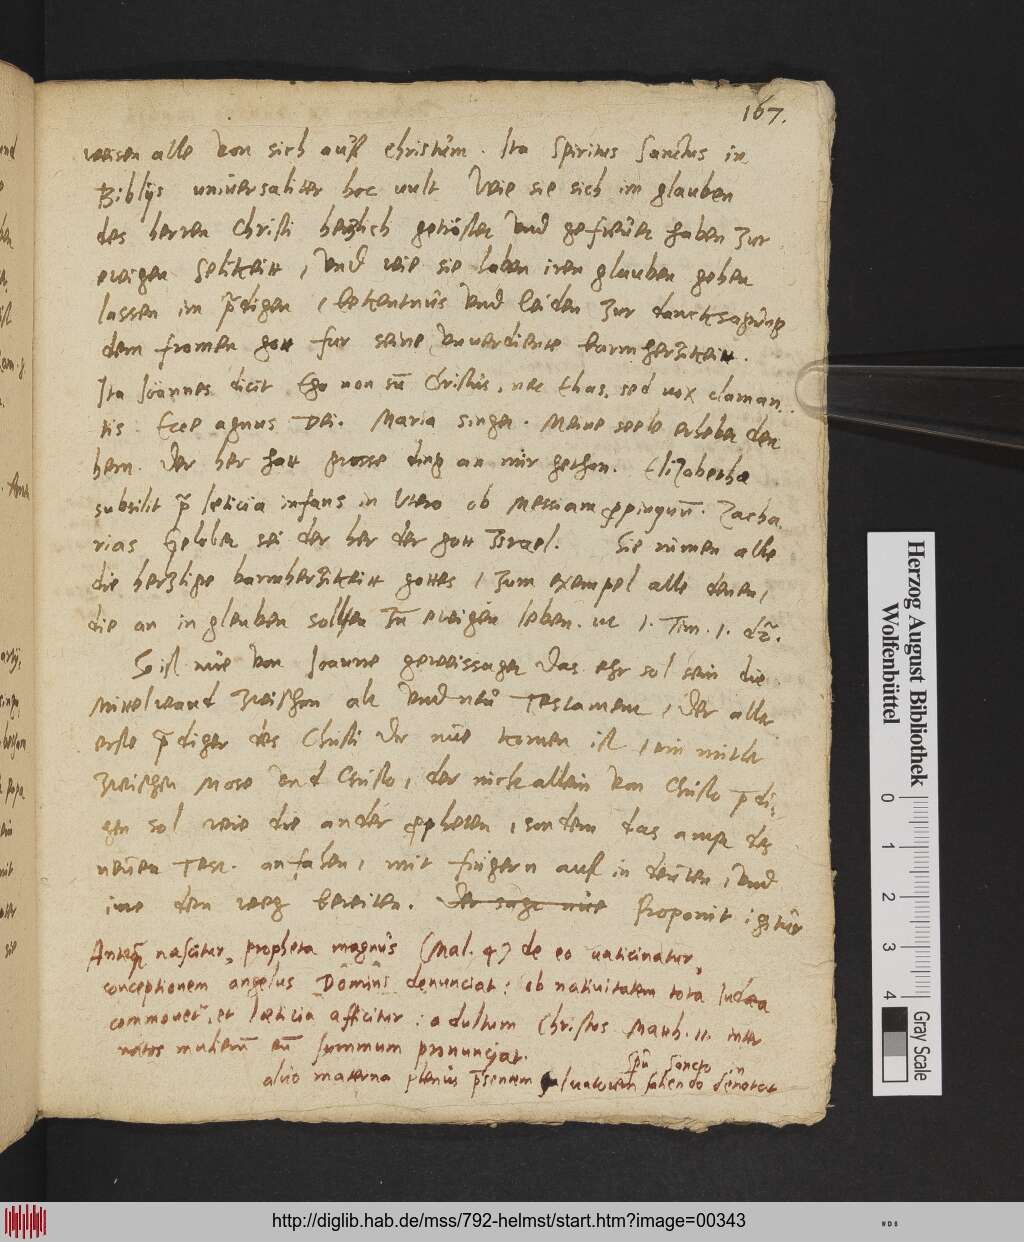 167.
weisen alle von sich auff christum. Ita Spiritus Sanctus in
Biblijs universaliter hoc uult Wie sie sich im glauben
des herren Christi hertzlich getröstet und gefreuet haben zur
ewigen Selikeitt, und wie sie laben iren glauben gehen
lassen im p̄digen, bekentnus und leiden zur dancksagung
dem fromen gott fur seine unuerdiente barmhertzikeitt.
Ita Joannes dicit Ego non sū Christus, nec Elias, sed uox claman
tis Ecce agnus Dei. Maria singet. Meine seele erhebet den
hern. Der her hatt grosse ding an mir gethan. Elizabethæ
subsilit p̄ læticia infans in Utero ob Messiam Zacha
rias Gelobet sei der her der gott Israel. Sie rümen alle
die hertzlige barmhertzikeitt gottes, zum exempel alle denen,
die an in gleuben sollen zu ewigen leben. ut 1. Tim. 1.
So ist nue von Joanne geweissaget das ehr sol sein die
Mittelwant zwischen alt und neu Testament, Der aller
erste p̄diger des Christi der nue komen ist, ein mitler
zwischen Mose und Christo, der nicht allein von Christo p̄di,
gen sol wie die ander ppheten, sondern das ampt des
neuen Test. anfahen, mit fingern auff in deuten, und
ime den weg bereiten. Der sagt nue Proponit igitur
Anteq̄ nascitur, propheta magnus (Mal. 4) de eo uaticinatur,
conceptionem angelus Domini denunciat: ob natiuitatem tota Iudæa
commouet, et læticia afficitur: adultum Christus Matth. 11. inter
natos mulierū eū summum pronunciat.
spū sancto
aluo materna plenus p̄sentem saluatorem saliendo denotat
Herzog August Bibliothek
Wolfenbüttel
0 1 2 3 4
Gray Scale
http://diglib.hab.de/mss/792-helmst/start.htm?image=00343